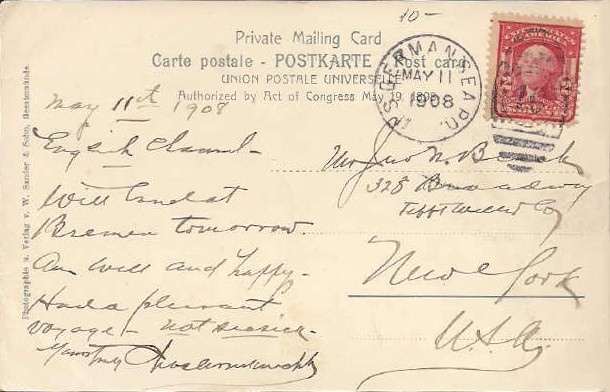 10-
Private Mailing Card
Carte postale - POSTKARTE - Post card
UNION POSTALE UNIVERSELLE
Authorized by Act of Congress May 19, 1898
U.S. GERMAN SEA P.O.
MAY 11
1908
May 11th 1908
English Channel-
Will land at
Bremen tomorrow.
Am well and happy-
Had a pleasant
voyage - not seasick-
Yours truly
Mr Jno N.
328 Broadway
Tefft Weller Co
New York
U.S.A.
Photographie u. Verlag v. W. Sander & Sohn, Geestemünde.